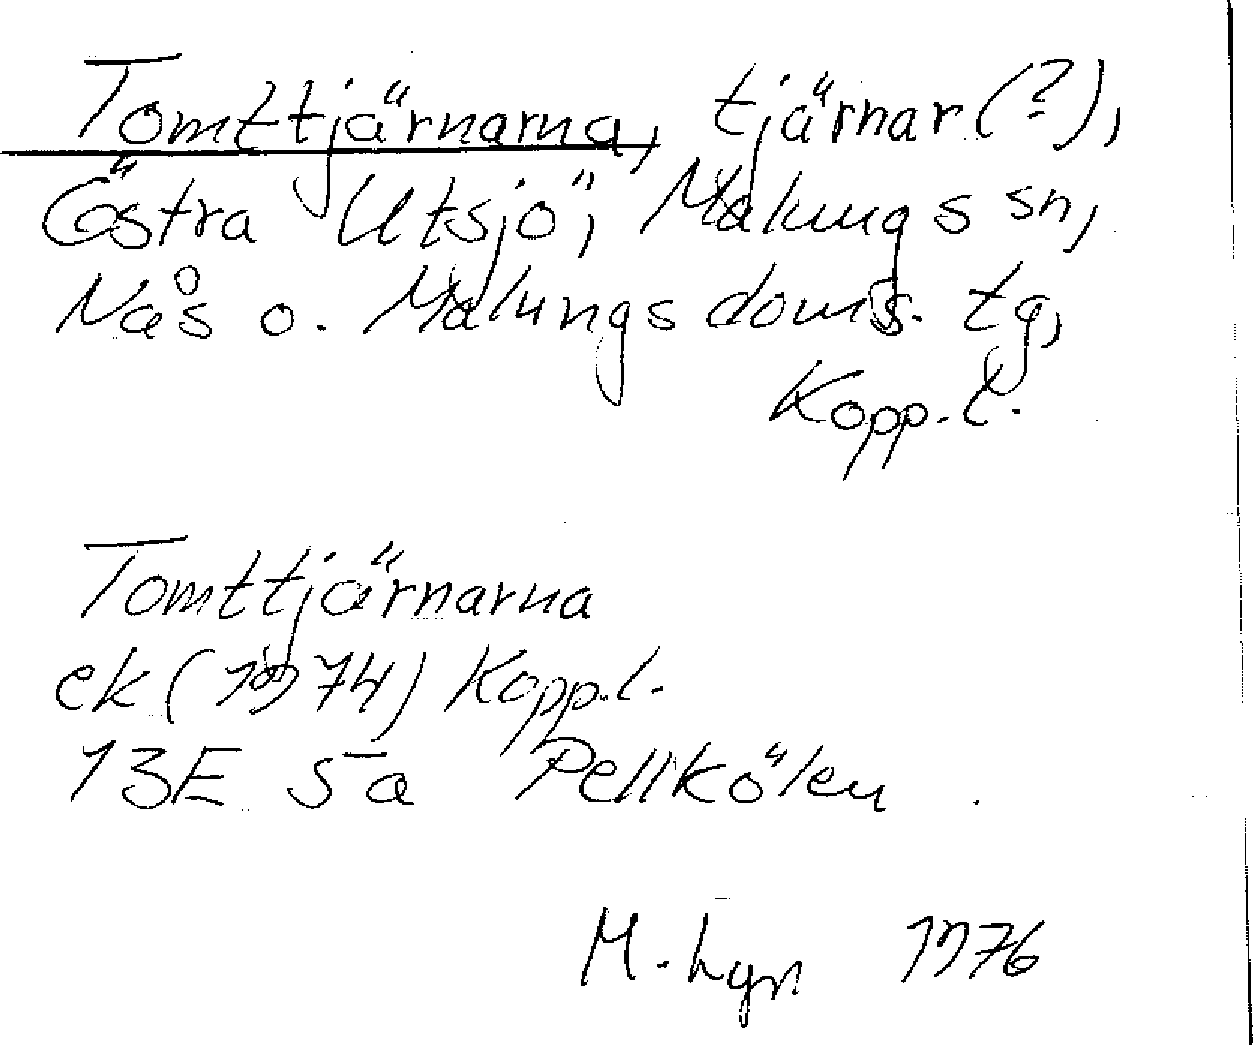 Tomttjärnarna, tjärnar (?),
Östra Utsjö, Malungs sn,
Nås o. Malungs doms. tg,
Kopp. l.
Tomttjärnarna
ek (1974) Kopp. l.
13E 5a Pellkölen
M. Lgn 1976